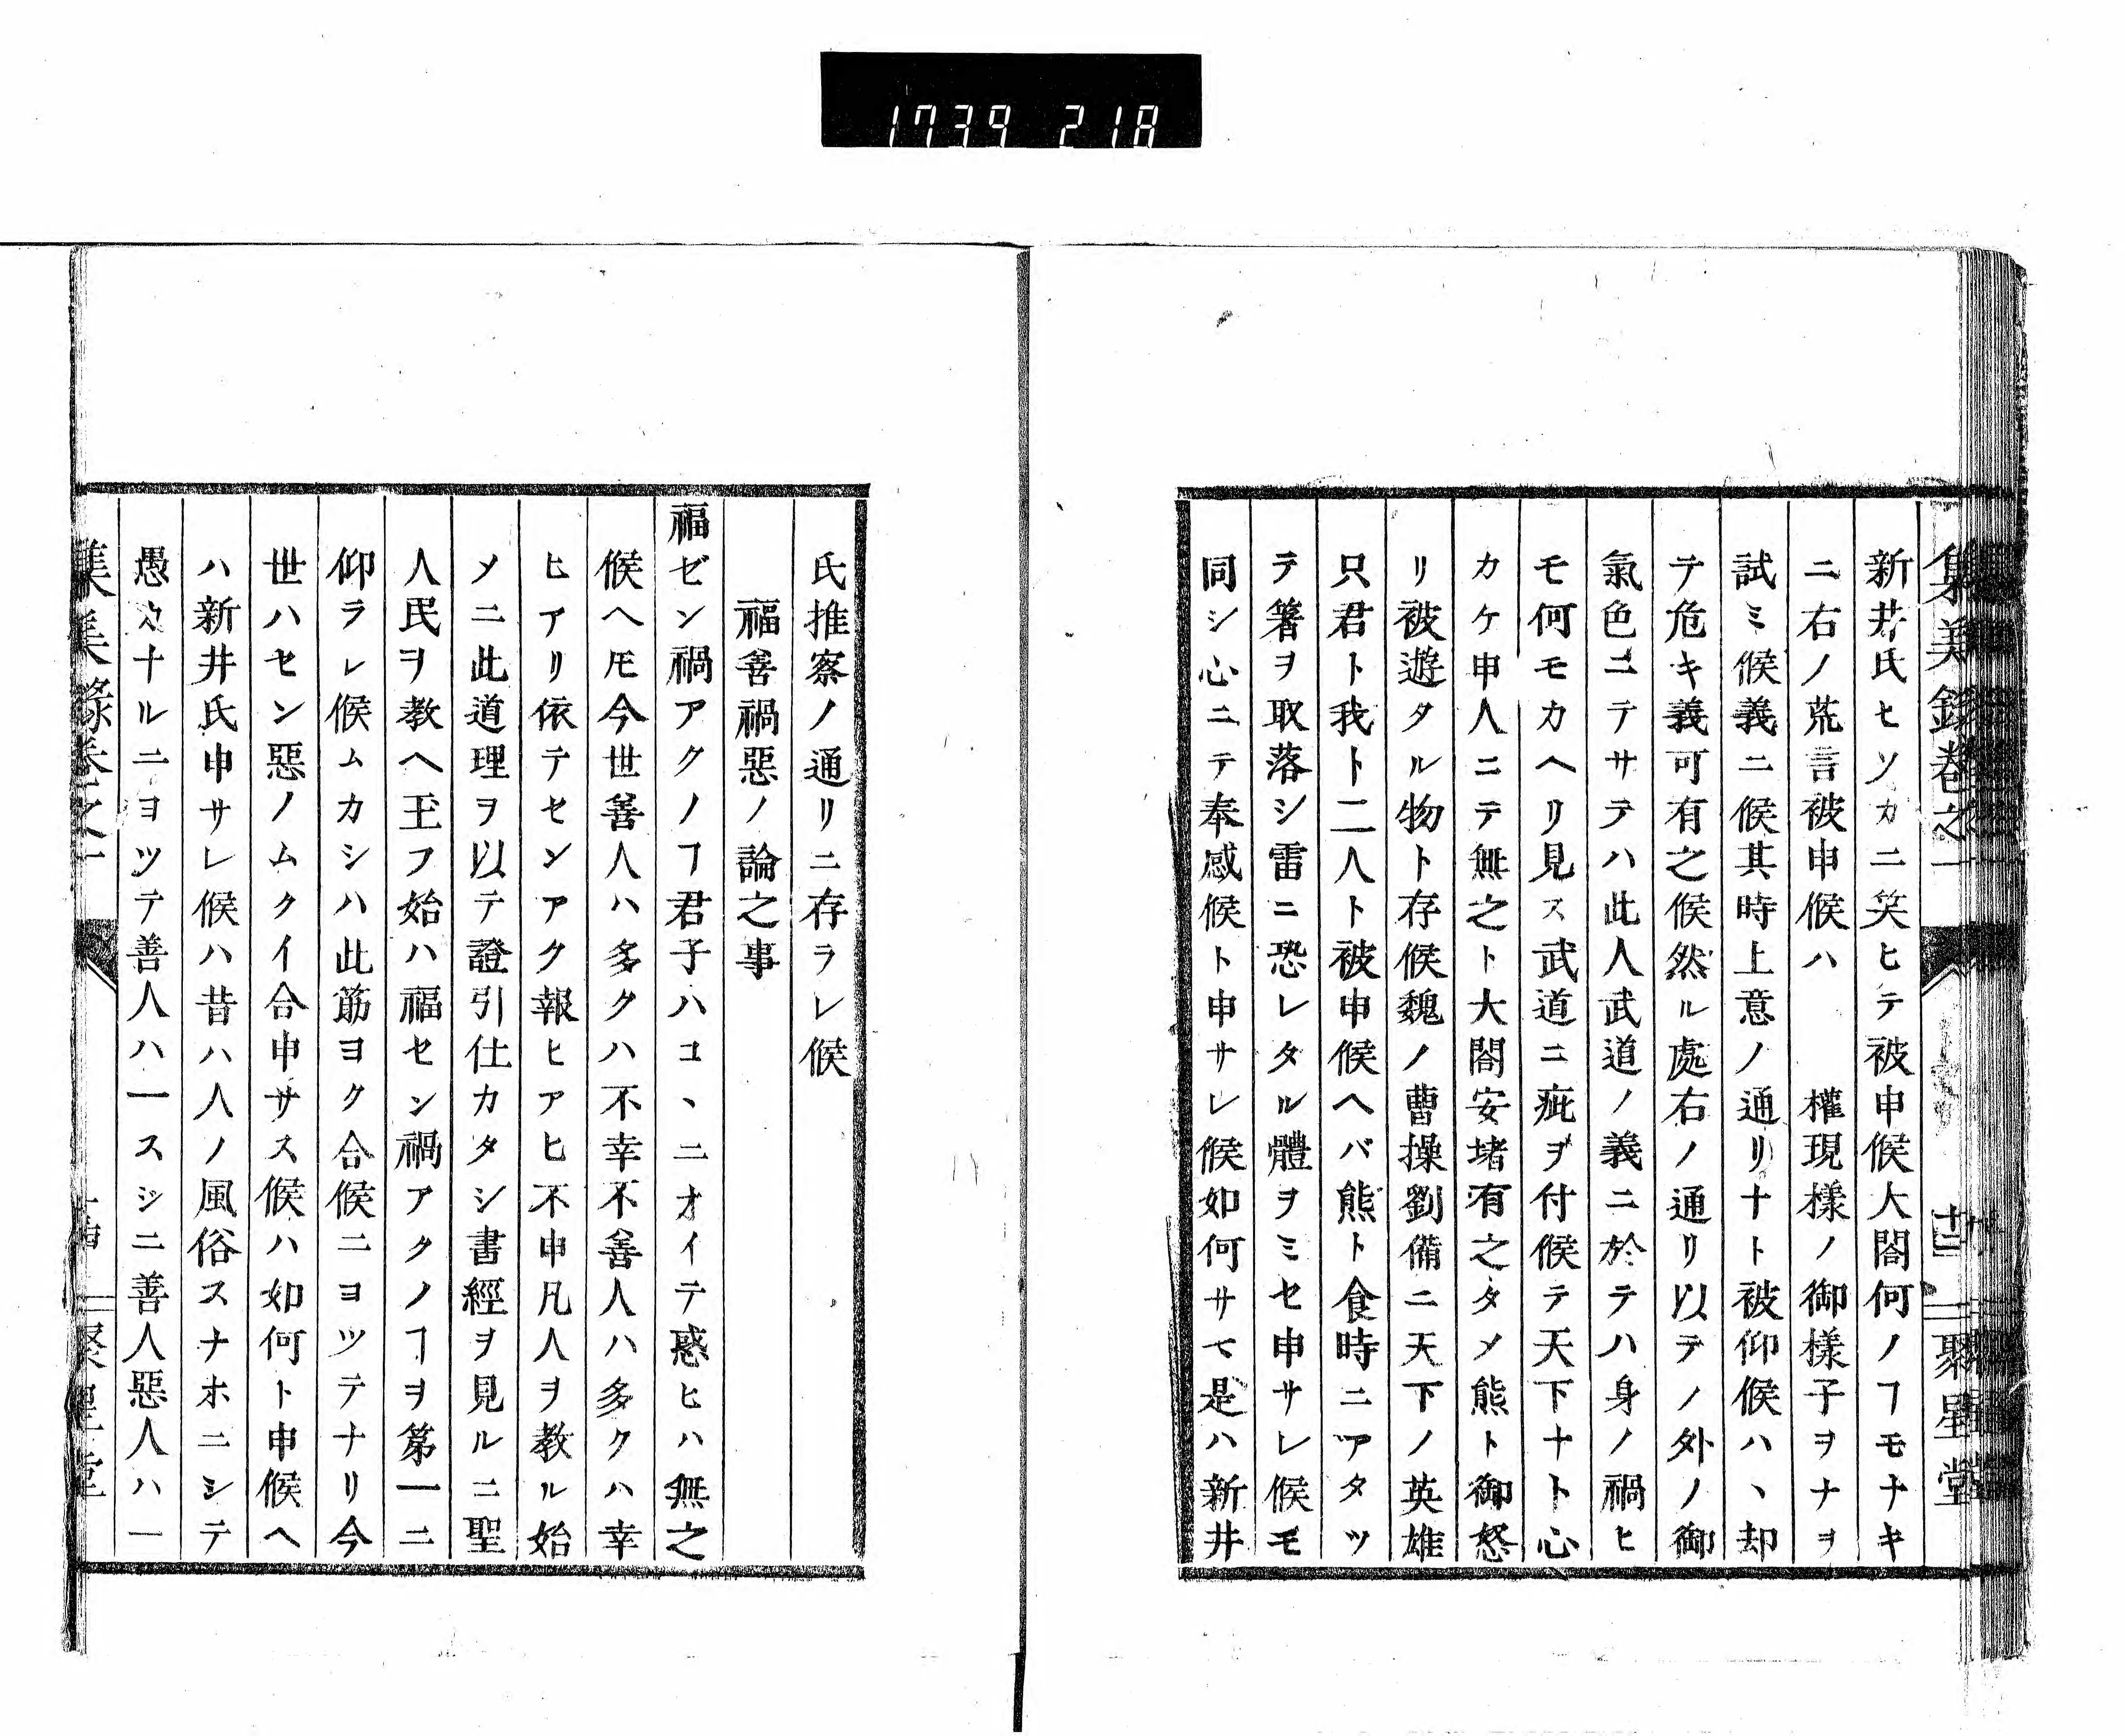 1739 218
集義録巻之一
聚星堂
新井氏ヒソカニ笑ヒテ被申候大閤何ノヿモナキ
ニ右ノ荒言被申候ハ　權現樣ノ御樣子ヲナヲ
試ミ候義ニ候其時上意ノ通リナト被仰候ハヽ却
テ危キ義可有之候然ル處右ノ通リ以テノ外ノ御
氣色ニテサテハ此人武道ノ義ニ於テハ身ノ禍ヒ
モ何モカヘリ見ス武道ニ疵ヲ付候テ天下ナト心
カケ申人ニテ無之ト大閤安堵有之タメ熊ト御怒
リ被遊タル物ト存候魏ノ曹操劉備ニ天下ノ英雄
只君ト我ト二人ト被申候ヘバ熊ト食時ニアタツ
テ箸ヲ取落シ雷ニ恐レタル體ヲミセ申サレ候モ
同シ心ニテ奉感候ト申サレ候如何サマ是ハ新井
氏推察ノ通リニ存ラレ候
福善禍惡ノ論之事
福ゼン禍アクノヿ君子ハコヽニオイテ惑ヒハ無之
候ヘ𪜈今世善人ハ多クハ不幸不善人ハ多クハ幸
ヒアリ依テセンアク報ヒアヒ不申凡人ヲ教ル始
メニ此道理ヲ以テ證引仕カタシ書經ヲ見ルニ聖
人民ヲ教ヘ玉フ始ハ福セン禍アクノヿヲ第一ニ
仰ラレ候ムカシハ此筋ヨク合候ニヨツテナリ今
世ハセン惡ノムクイ合申サス候ハ如何ト申候ヘ
ハ新井氏申サレ候ハ昔ハ人ノ風俗スナホニシテ
愚カナルニヨツテ善人ハ一スシニ善人惡人ハ一
集義録巻之一
聚星堂